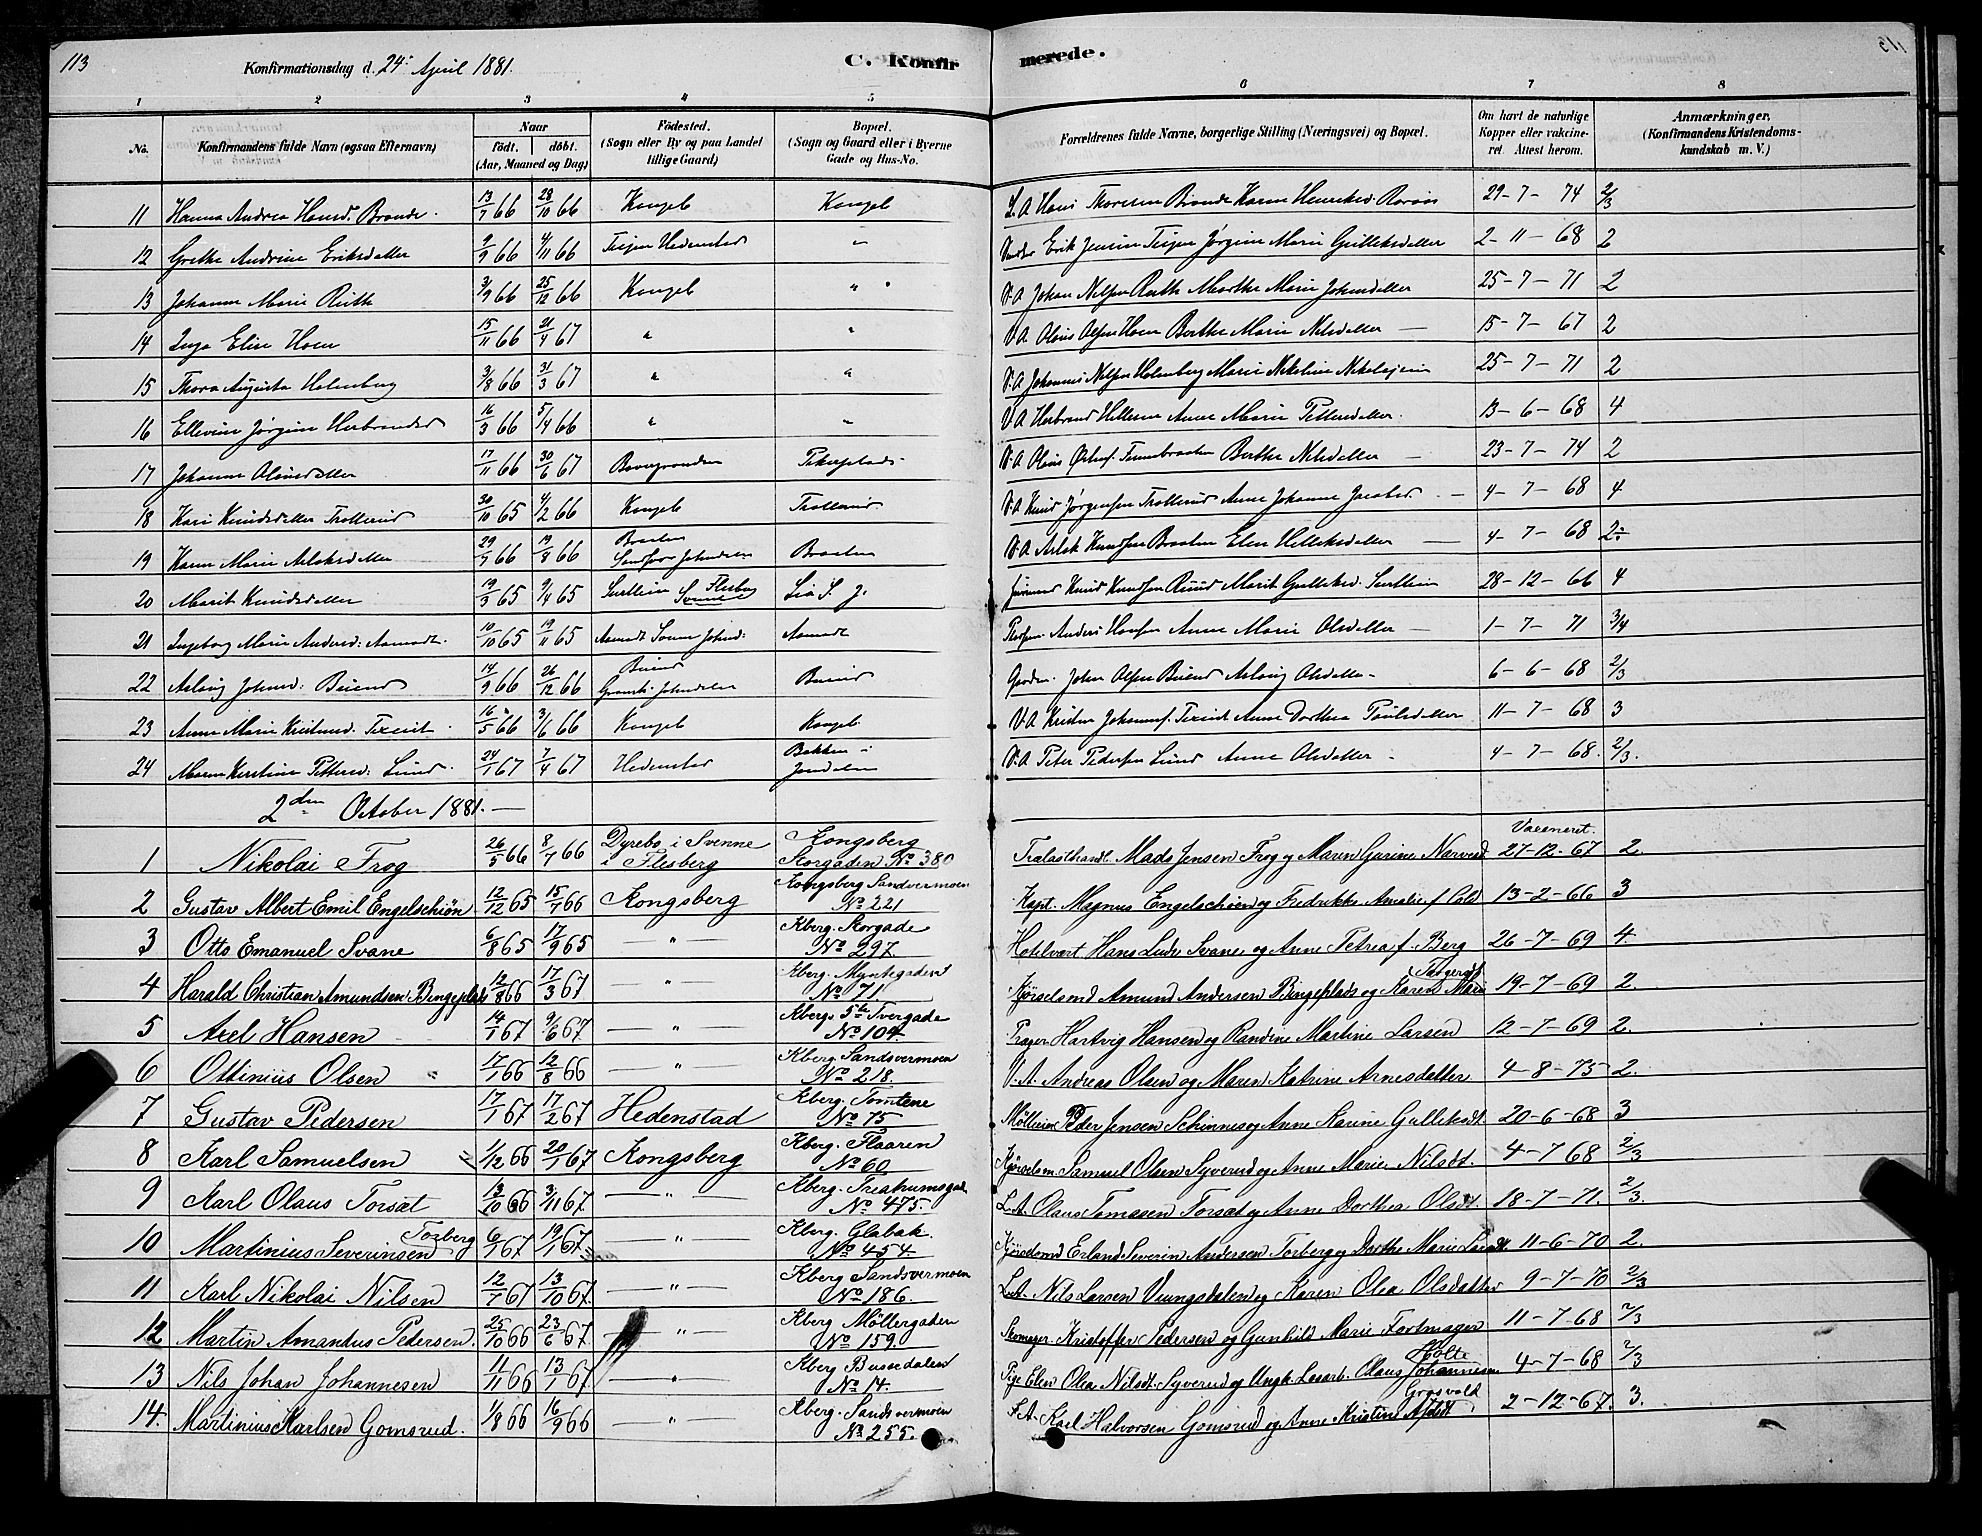 113 Konfirmationsdag d. 24. April 1881. C. Konfirmerede.
1 2 3 4 5 6 7 8
No. Konfirmandens fulde Navn (ogsaa Efternavn) Naar født. døbt. (Aar, Maaned og Dag) Fødested. (Sogn eller By og paa Landet tillige Gaard) Bopæl. (Sogn og Gaard eller i Byerne Gade og Hus-No. Forældrenes fulde Navne, borgerlige Stilling (Næringsvei) og Bopæl. Om havt de naturlige Kopper eller vakcineret. Attest herom. Anmærkninger. (Konfirmandens Kristendomskundskab m. V.)
11 Hanna Andrea Hansd. Brande. 13/7 66 28/10 66 Kongsb Kongsb L.A Hans Thoresen Brande Karen Henriksd. 29-7-74 2/3
12 Grethe Andrine Eriksdatter 9/9 66 4/11 66 Teigen Hedenstad " Erik Jensen Teigen Jørgine Marie Gulleksdatter 2-11-68 2
13 Johanne Marie Ruth 3/9 66 25/12 66 Kongsb " " V.A Johan Nilsen Ruth Marthe Marie Johnsdatter 25-7-71 2
14 Inga Elise Hoen 15/11 66 21/4 67 " " V.A Olaus Olsen Hoen Berthe Marie Nilsdatter — 15-7-67 2
15 Thora Augusta Holmberg 3/8 66 31/3 67 " " V.A Johannes Nilsen Holmberg Marie Nikoline Nikolajsen 25-7-71 2
16 Ellevine Jørgine Herbrandsd 16/3 66 5/4 66 " " V.A Herbrand Hellesen Anne Marie Pettersdatter. 13-6-68 4
17 Johanne Olausdatter 17/11 66 30/6 67 Pikerplads V.A Olaus Berthe Nilsdatter — 23-7-74 2
18 Kari Knudsdatter Trollerud 30/10 65 4/2 66 Kongsb Trollerud V.A Knud Jørgensen Trollerud Anne Johanne Jacobsd. — 4-7-68 4
19 Karen Marie Aslaksdatter 29/7 66 19/8 66 Braaten Johndalen Braaten V.A Aslak Knudsen Braaten Elen Helleksdatter — 4-7-68 2
20 Marit Knudsdatter 19/3 65 9/4 65 Flesberg Svene Lia S. J. Knud Knudsen Ruud Marit Gulleksd. 28-12-66 4
21 Ingeborg Marie Andersd: Aamodt. 10/10 65 19/11 65 Aamodt Aamodt Anders Hansen Anne Marie Olsdatter — 1-7-71 3/4
22 Aslaug Johnsd: Buind 14/9 66 26/12 66 Buind Johndalen Buind John Olsen Buind Aslaug Olsdatter - 6-6-68 2/3
23 Anne Marie Kristensd. 16/5 66 3/6 66 Kongsb Kongsb V.A Kristen Anne Dorthea Poulsdatter 11-7-68 3
24 Maren Kirstine Pettersd. Lund. 24/1 67 7/4 67 Hedenstad Bakken i Jondalen V.A Peter Pedersen Lund Anne Olsdatter - 4-7-68. 2/3.
2den October 1881. —
1 Nikolai Frog 26/5 66 8/7 66 Dyrebo i Svenne i Flesberg Kongsberg Storgaden No 380 Trælasthandl. Mads Jensen Frog og Maren Gurine Narverud Vaccineret. 27-12-67 2.
2 Gustav Albert Emil Engelschiøn 12/12 65 15/7 66 Kongsberg Kongsberg Sandsvermoen No 221 Kapt. Magnus Engelschiøn og Fredrikke Amalie f. Cold 13-2-66 3
3 Otto Emanuel Svane 6/8 65 17/9 65 — " — Kberg. Storgade No 297. Hotelvært Hans Ludv. Svane og Anne Petrea f. Berg 26-7-69 4.
4 Harald Christian Amundsen Bingeplads 12/8 66 17/3 67 — " — Kberg. Myntegaden No 71. Kjørselsmd Amund Andersen Bingeplads og Karen Marie 19-7-69 2.
5 Axel Hansen 14/1 67 9/6 67 — " — Kberg. 5te Tvergade No 104. Hartvig Hansen og Randine Martine Larsen 12-7-69 2.
6 Ottinius Olsen 17/1 66 12/8 66 — " — Kberg. Sandsvermoen No 218. V.A. Andreas Olsen og Maren Katrine Arnesdatter 4-8-75 2.
7 Gustav Pedersen 17/1 67 17/2 67 Hedenstad Kberg. Tomtene No 75 Peder Jensen Schinnes og Anne Karine Gulleksdt. 20-6-68 3
8 Karl Samuelsen 1/12 66 20/1 67 Kongsberg Kberg. Flaaren No 60 Kjørselsm. Samuel Olsen Syverud og Anne Marie Nilsdt. 4-7-68 2/3
9 Karl Olaus Torsæt 13/10 66 3/11 67. — " — Kberg. Treatrumsgade No 475. L.A. Olaus Tomasen Torsæt og Anne Dorthea Olsdt. 18-7-71. 2/3
10 Martinius Severinsen Torberg 6/1 67 19/1 67. — " — Kberg. Glabak. No 454 Kjørselsmd Erland Severin Andersen Torberg og Dorthe Marie Larsdt. 11-6-70 2.
11 Karl Nikolai Nilsen 12/7 67 13/10 67. — " — Kberg Sandsvermoen No 186. L.A. Nils Larsen Vungsdalen og Karen Olea Olsdatter 9-7-70 2/3
12 Martin Amandus Pedersen. 25/10 66 23/6 67. — " — Kberg Möllergaden No 159. Skomager. Kristoffer Pedersen og Gunhild Marie Fortmager 11-7-68 2/3
13 Nils Johan Johannesen 4/11 66 13/1 67. — " — Kberg Bussedalen No 14. Pige Elen Olea Nilsdt. Syverud og Ungk. Olaus Johannesen Holte 4-7-68 2/3
14. Martinius Karlsen Gomsrud. 1/8 66 16/9 66 — " — Kberg. Sandsvermoen No 255. F.A. Karl Halvorsen Gomsrud og Anne Kristine Grosvold 2-12-67. 3.